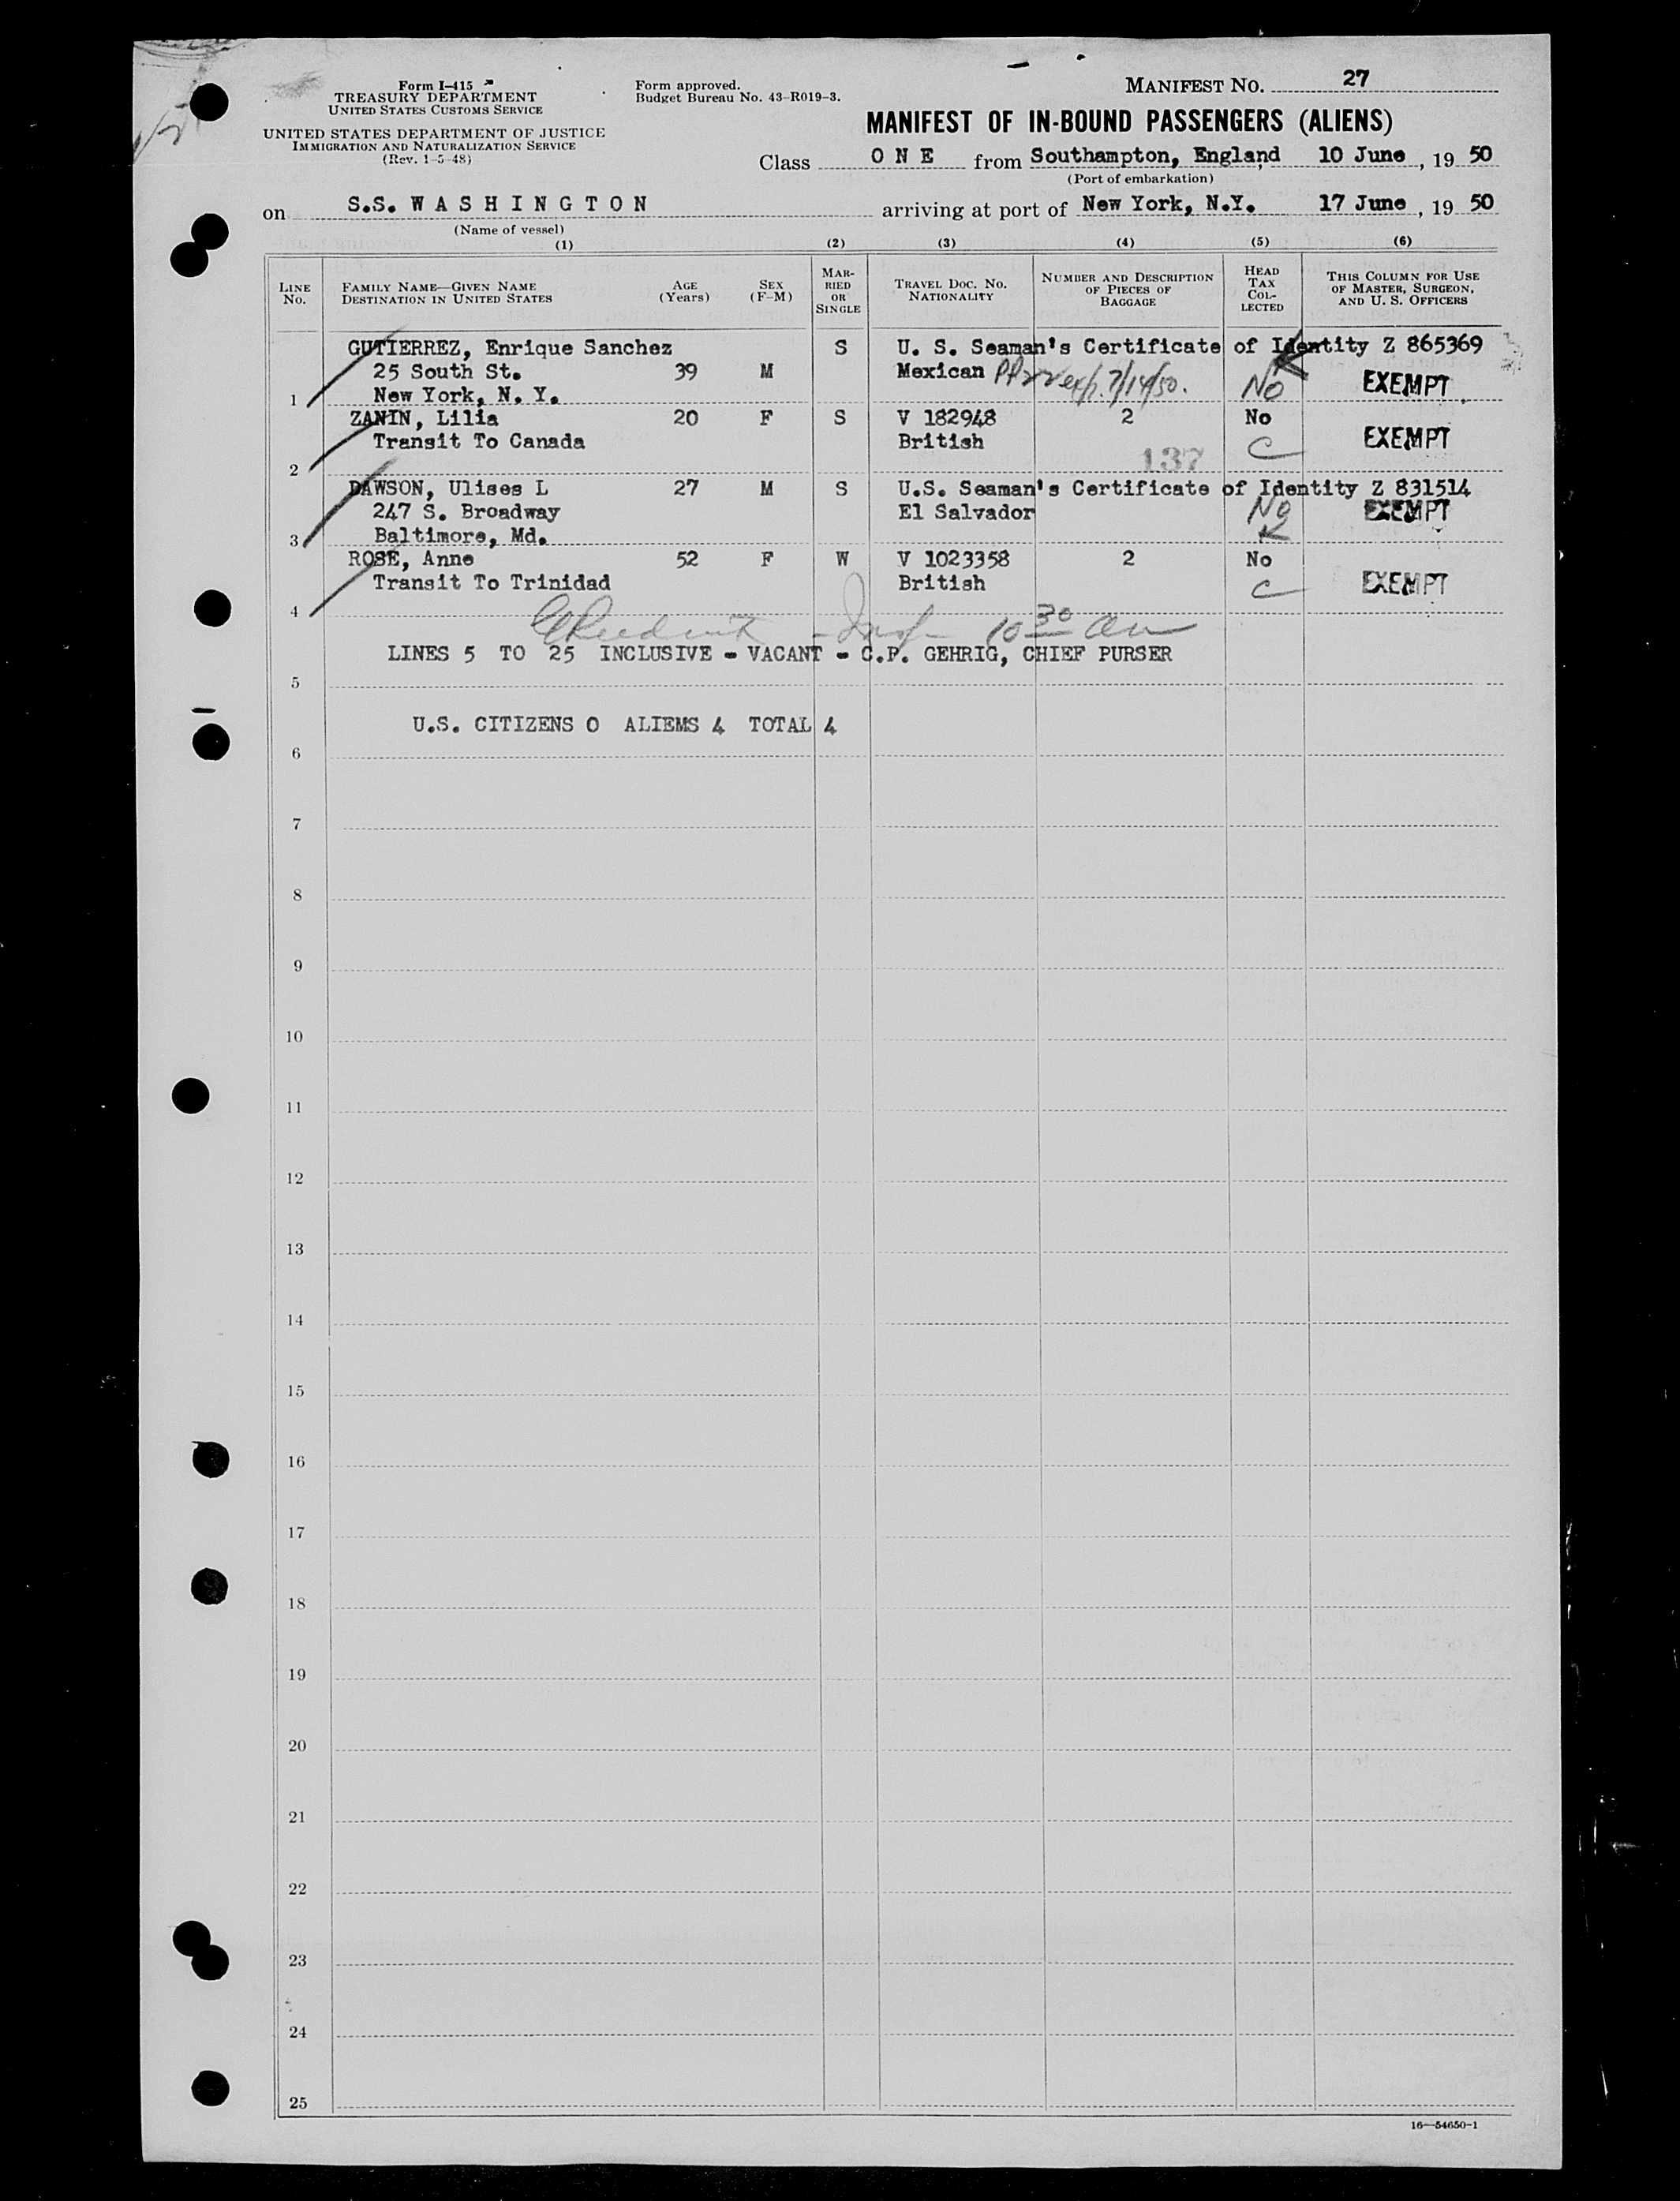 Form I-415
TREASURY DEPARTMENT
UNITED STATES CUSTOMS SERVICE
UNITED STATES DEPARTMENT OF JUSTICE
IMMIGRATION AND NATURALIZATION SERVICE
(Rev. 1-5-48)
Form approved.
Budget Bureau No. 43-R019-3.
MANIFEST NO. 27
MANIFEST OF IN-BOUND PASSENGERS (ALIENS)
Class O N E from Southampton, England 10 June, 19 50
(Port of embarkation)
on S.S. W A S H I N G T O N arriving at port of New York, N.Y. 17 June, 19 50
(Name of vessel)
(1) (2) (3) (4) (5) (6)
LINE NO.
FAMILY NAME—GIVEN NAME
DESTINATION IN UNITED STATES
AGE (Years)
SEX (F-M)
MARRIED OR SINGLE
TRAVEL DOC. NO.
NATIONALITY
NUMBER AND DESCRIPTION OF PIECES OF BAGGAGE
HEAD TAX COLLECTED
THIS COLUMN FOR USE OF MASTER, SURGEON, AND U. S. OFFICERS
GUTIERREZ, Enrique Sanchez S U. S. Seaman's Certificate of Identity Z 865369
25 South St. 39 M Mexican exp. 7/14/50. No EXEMPT
1 New York, N. Y.
ZANIN, Lilia 20 F S V 182948 2 No
Transit To Canada British C EXEMPT
2 137
DAWSON, Ulises L 27 M S U.S. Seaman's Certificate of Identity Z 831514
247 S. Broadway El Salvador No EXEMPT
3 Baltimore, Md.
ROSE, Anne 52 F W V 1023358 2 No
Transit To Trinidad British C EXEMPT
4
10 30 am
LINES 5 TO 25 INCLUSIVE - VACANT - C.P. GEHRIG, CHIEF PURSER
5
U.S. CITIZENS 0 ALIEMS 4 TOTAL 4
6
7
8
9
10
11
12
13
14
15
16
17
18
19
20
21
22
23
24
25
16—54650-1